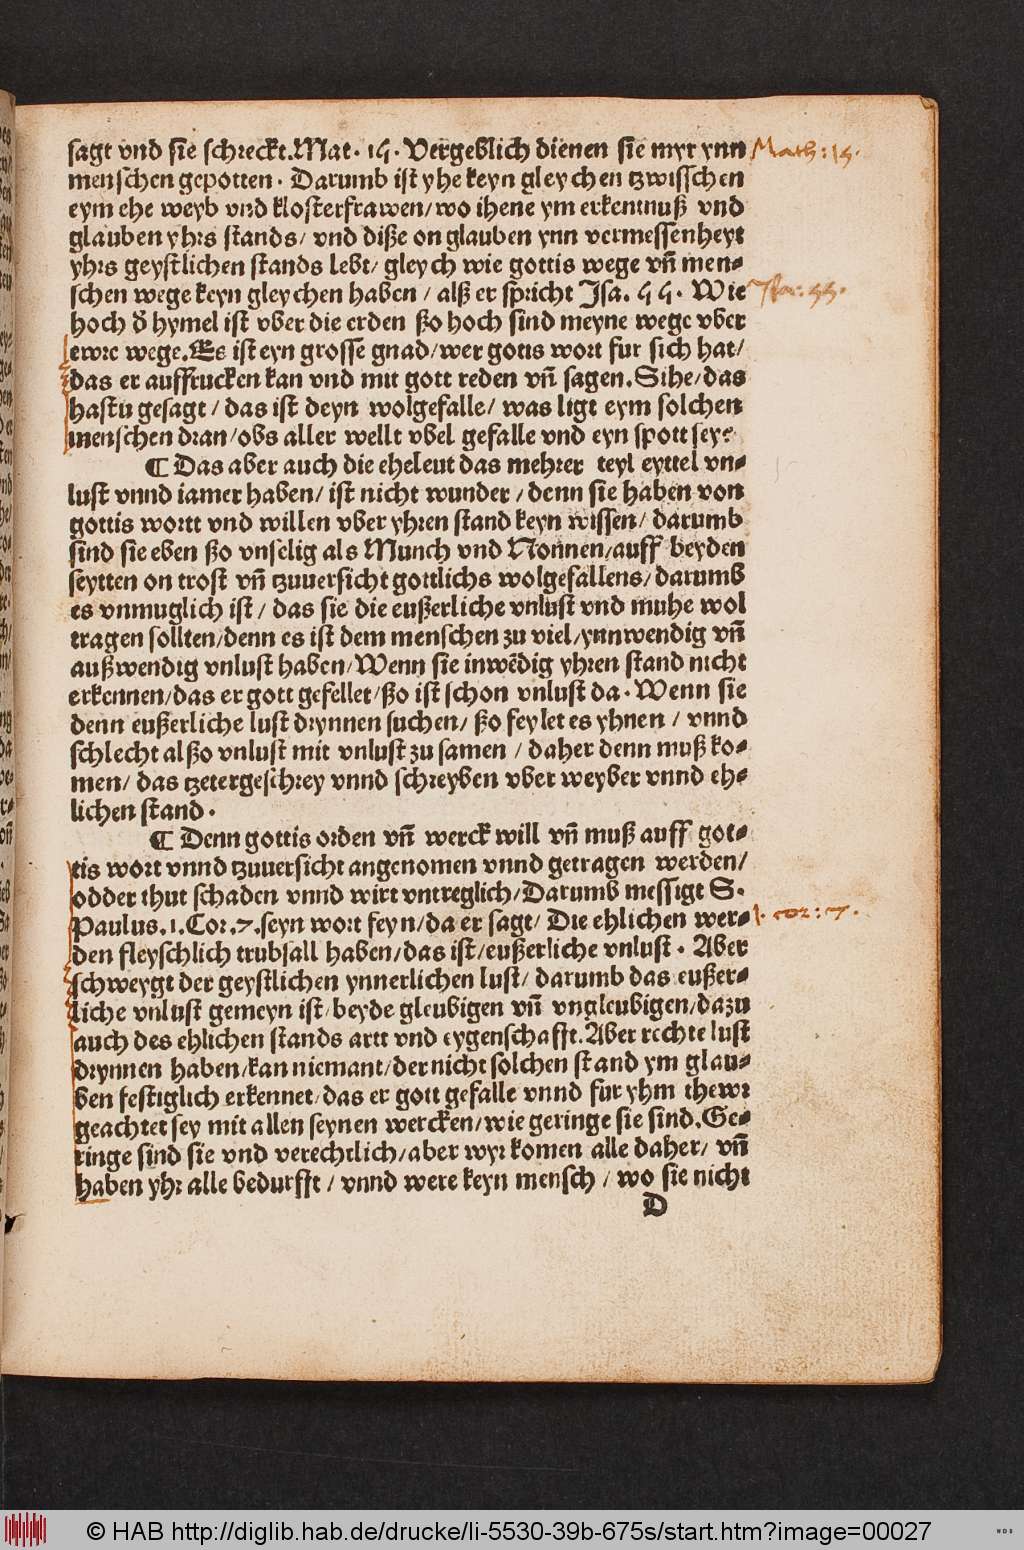 sagt vnd sie schreckt. Mat. 15. Vergeblich dienen sie myr ynn
Math: 15.
menschen gepotten. Darumb ist yhe keyn gleychen tzwisschen
eym ehe weyb vnd klosterfrawen/ wo ihene ym erkentnuß vnd
glauben yhrs stands/ vnd diße on glauben ynn vermessenheyt
yhrs geystlichen stands lebt/ gleych wie gottis wege vn̄ men⸗
schen wege keyn gleychen haben/ alß er spricht Jsa. 55. Wie
Jsa: 55.
hoch d̓ hymel ist vber die erden ßo hoch sind meyne wege vber
ewre wege. Es ist eyn grosse gnad/ wer gotis wort fur sich hat/
das er auffrucken kan vnd mit gott reden vn̄ sagen. Sihe/ das
hastu gesagt/ das ist deyn wolgefalle/ was ligt eym solchen
menschen dran/ obs aller wellt vbel gefalle vnd eyn spott sey?
¶ Das aber auch die eheleut das mehrer teyl eyttel vn⸗
lust vnnd iamer haben/ ist nicht wunder/ denn sie haben von
gottis wortt vnd willen vber yhren stand keyn wissen/ darumb
sind sie eben ßo vnselig als Munch vnd Nonnen/ auff beyden
seytten on trost vn̄ tzuuersicht gottlichs wolgefallens/ darumb
es vnmuglich ist/ das sie die eußerliche vnlust vnd muhe wol
tragen sollten/ denn es ist dem menschen zu viel/ ynnwendig vn̄
außwendig vnlust haben/ Wenn sie inwēdig yhren stand nicht
erkennen/ das er gott gefellet/ ßo ist schon vnlust da. Wenn sie
denn eußerliche lust drynnen suchen/ ßo feylet es yhnen/ vnnd
schlecht alßo vnlust mit vnlust zu samen/ daher denn muß ko⸗
men/ das tzetergeschrey vnnd schreyben vber weyber vnnd eh⸗
lichen stand.
¶ Denn gottis orden vn̄ werck will vn̄ muß auff got⸗
tis wort vnnd tzuuersicht angenomen vnnd getragen werden/
odder thut schaden vnnd wirt vntreglich/ Darumb messigt S.
Paulus. 1. Cor. 7. seyn wort feyn/ da er sagt/ Die ehlichen wer⸗
1. cor: 7.
den fleyschlich trubsall haben/ das ist/ eußerliche vnlust. Aber
schweygt der geystlichen ynnerlichen lust/ darumb das eußer⸗
liche vnlust gemeyn ist/ beyde gleubigen vn̄ vngleubigen/ dazu
auch des ehlichen stands artt vnd eygenschafft. Aber rechte lust
drynnen haben/ kan niemant/ der nicht solchen stand ym glau⸗
ben festiglich erkennet/ das er gott gefalle vnnd fur yhm thewr
geachtet sey mit allen seynen wercken/ wie geringe sie sind. Ge⸗
ringe sind sie vnd verechtlich/ aber wyr komen alle daher/ vn̄
haben yhr alle bedurfft/ vnnd were keyn mensch/ wo sie nicht
D
© HAB http://diglib.hab.de/drucke/li-5530-39b-675s/start.htm?image=00027